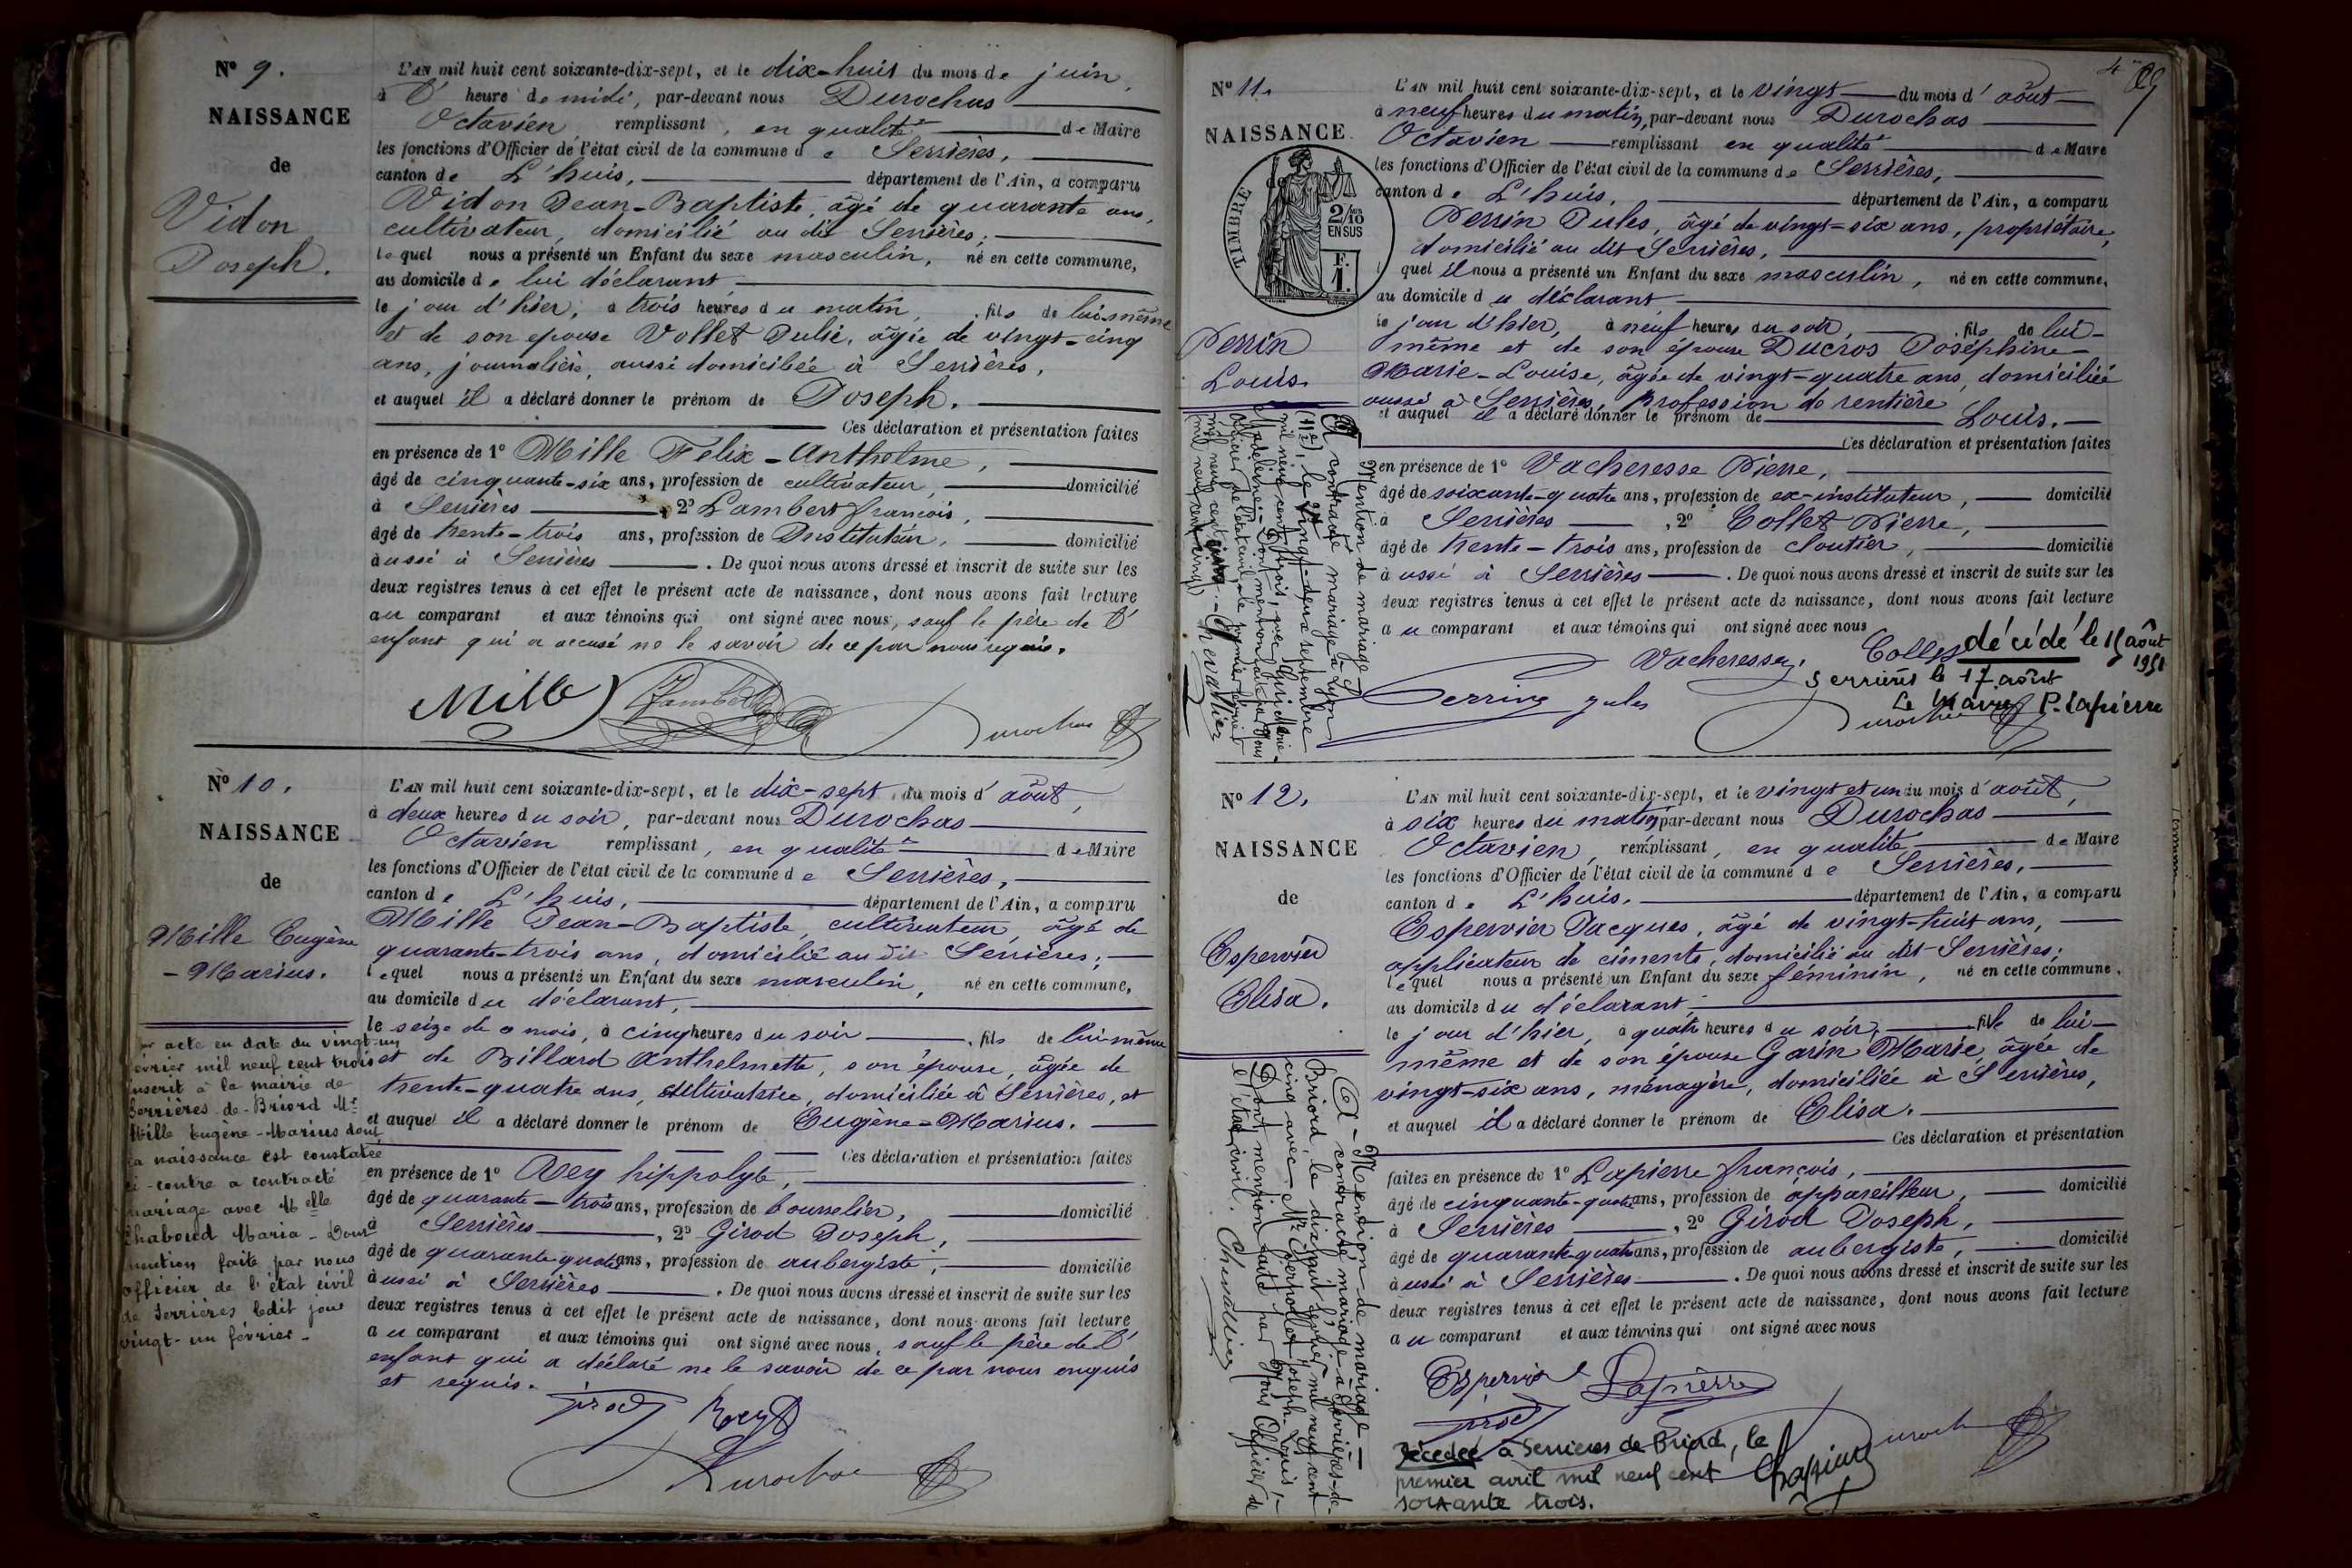 Nº 9.
NAISSANCE
de
Vidon
Joseph.
L'AN mil huit cent soixante-dix-sept, et le dix-huit du mois de juin,
à l' heure de midi, par-devant nous Durochas
Octavien, remplissant, en qualité de Maire
les fonctions d'Officier de l'état civil de la commune de Serrières,
canton de L'huis, département de l'Ain, a comparu
Vidon Jean-Baptiste, âgé de quarante ans,
cultivateur, domicilié au dit Serrières;
lequel nous a présenté un Enfant du sexe masculin, né en cette commune,
au domicile de lui déclarant
le jour d'hier, à trois heures du matin, fils de lui-même
et de son épouse Vollet Julie, âgée de vingt-cinq
ans, journalière, aussi domiciliée à Serrières,
et auquel il a déclaré donner le prénom de Joseph.
Ces déclaration et présentation faites
en présence de 1º Mille Felix-Anthelme,
âgé de cinquante-six ans, profession de cultivateur, domicilié
à Serrières, 2º Lambert françois,
âgé de trente-trois ans, profession de Instituteur, domicilié
aussi à Serrières. De quoi nous avons dressé et inscrit de suite sur les
deux registres tenus à cet effet le présent acte de naissance, dont nous avons fait lecture
au comparant et aux témoins qui ont signé avec nous, sauf le père de l'
enfant qui a accusé ne le savoir de ce par nous requis.
Mille Lambert Durochas
Nº 10.
NAISSANCE
de
Mille Eugène
-Marius.
Par acte en date du vingt-un
février mil neuf cent trois
inscrit à la mairie de
Serrières-de-Briord Mr
Mille Eugène-Marius dont
la naissance est constatée
ci-contre a contracté
mariage avec Melle
Chaboud Maria - Dont
mention faite par nous
officier de l'état civil
de Serrières ledit jour
vingt-un février -
L'AN mil huit cent soixante-dix-sept, et le dix-sept du mois d'août,
à deux heures du soir, par-devant nous Durochas
Octavien remplissant, en qualité de Maire
les fonctions d'Officier de l'état civil de la commune de Serrières,
canton de L'huis, département de l'Ain, a comparu
Mille Jean-Baptiste, cultivateur, âgé de
quarante-trois ans, domicilié au dit Serrières;
lequel nous a présenté un Enfant du sexe masculin, né en cette commune,
au domicile du déclarant,
le seize de ce mois, à cinq heures du soir, fils de lui-même
et de Billard Anthelmette, son épouse, âgée de
trente-quatre ans, cultivatrice, domiciliée à Serrières, et
et auquel il a déclaré donner le prénom de Eugène-Marius.
Ces déclaration et présentation faites
en présence de 1º Rey hippolyte,
âgé de quarante-trois ans, profession de bourrelier, domicilié
à Serrières, 2º Girod Joseph,
âgé de quarante quatre ans, profession de aubergiste, domicilié
aussi à Serrières. De quoi nous avons dressé et inscrit de suite sur les
deux registres tenus à cet effet le présent acte de naissance, dont nous avons fait lecture
au comparant et aux témoins qui ont signé avec nous, sauf le père de l'
enfant qui a déclaré ne le savoir de ce par nous enquis
et requis.
Girod Rey
Durochas
4
Nº 11.
NAISSANCE
de
TIMBRE
2/10 EN SUS
F. 1.
Perrin
Louis.
Mention de mariage
A contracté mariage à Lyon
(11e), le vingt-deux septembre
mil neuf cent trois, avec
Dont mention faite par Nous
officier de l'état civil le premier février
mil neuf cent cinq. Chevallier
(mil neuf cent cinq)
L'AN mil huit cent soixante-dix-sept, et le vingt du mois d'août
à neuf heures du matin, par-devant nous Durochas
Octavien remplissant en qualité de Maire
les fonctions d'Officier de l'état civil de la commune de Serrières,
canton de L'huis, département de l'Ain, a comparu
Perrin Jules, âgé de vingt-six ans, propriétaire,
domicilié au dit Serrières,
quel il nous a présenté un Enfant du sexe masculin, né en cette commune,
au domicile du déclarant
le jour d'hier, à neuf heures du soir, fils de lui-
même et de son épouse Ducros Joséphine-
Marie-Louise, âgée de vingt-quatre ans, domiciliée
aussi à Serrières, profession de rentière
et auquel il a déclaré donner le prénom de Louis.
Ces déclaration et présentation faites
en présence de 1º Vacheresse Pierre,
âgé de soixante-quatre ans, profession de ex-instituteur, domicilié
à Serrières, 2º Collet Pierre,
âgé de trente-trois ans, profession de cloutier, domicilié
aussi à Serrières. De quoi nous avons dressé et inscrit de suite sur les
deux registres tenus à cet effet le présent acte de naissance, dont nous avons fait lecture
au comparant et aux témoins qui ont signé avec nous
Vacheresse Collet
décédé le 15 août
1951
Serrières le 17 août
Le Maire P. Lapierre
Perrin Jules Durochas
Nº 12.
NAISSANCE
de
Espervier
Elisa.
Mention de mariage
A contracté mariage à Serrières-de-
Briord, le dix huit février mil neuf cent
cinq avec Mr Perrollet Joseph-Louis,
Dont mention faite par Nous Officier de
l'état civil. Chevallier
L'AN mil huit cent soixante-dix-sept, et le vingt et un du mois d'août,
à six heures du matin, par-devant nous Durochas
Octavien, remplissant, en qualité de Maire
les fonctions d'Officier de l'état civil de la commune de Serrières,
canton de L'huis, département de l'Ain, a comparu
Espervier Jacques, âgé de vingt-huit ans,
applicateur de ciments, domicilié au dit Serrières;
lequel nous a présenté un Enfant du sexe féminin, né en cette commune,
au domicile du déclarant,
le jour d'hier, à quatre heures du soir, fille de lui-
même et de son épouse Garin Marie, âgée de
vingt-six ans, ménagère, domiciliée à Serrières,
et auquel il a déclaré donner le prénom de Elisa.
Ces déclaration et présentation
faites en présence de 1º Lapierre françois,
âgé de cinquante-quatre ans, profession de appareilleur, domicilié
à Serrières, 2º Girod Joseph,
âgé de quarante-quatre ans, profession de aubergiste, domicilié
aussi à Serrières. De quoi nous avons dressé et inscrit de suite sur les
deux registres tenus à cet effet le présent acte de naissance, dont nous avons fait lecture
au comparant et aux témoins qui ont signé avec nous
Espervier Lapierre
Girod Durochas
Décédée à Serrières de Briord, le
premier avril mil neuf cent
soixante trois.
Lapierre